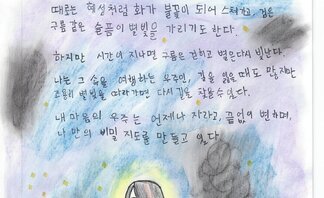 때로는 혜성처럼 화가 불꽃이 되어 스쳐가고, 검은
구름 같은 슬픔이 별빛을 가리기도 한다.
하지만 시간이 지나면 구름은 걷히고 별은 다시 빛난다.
나는 그 속을 여행하는 우주인, 길을 잃을 때도 많지만
조용히 별빛을 따라가면 다시 길을 찾을 수 있다.
내 마음의 우주는 언제나 자라고, 끝없이 변하며,
나만의 비밀 지도를 만들고 있다.